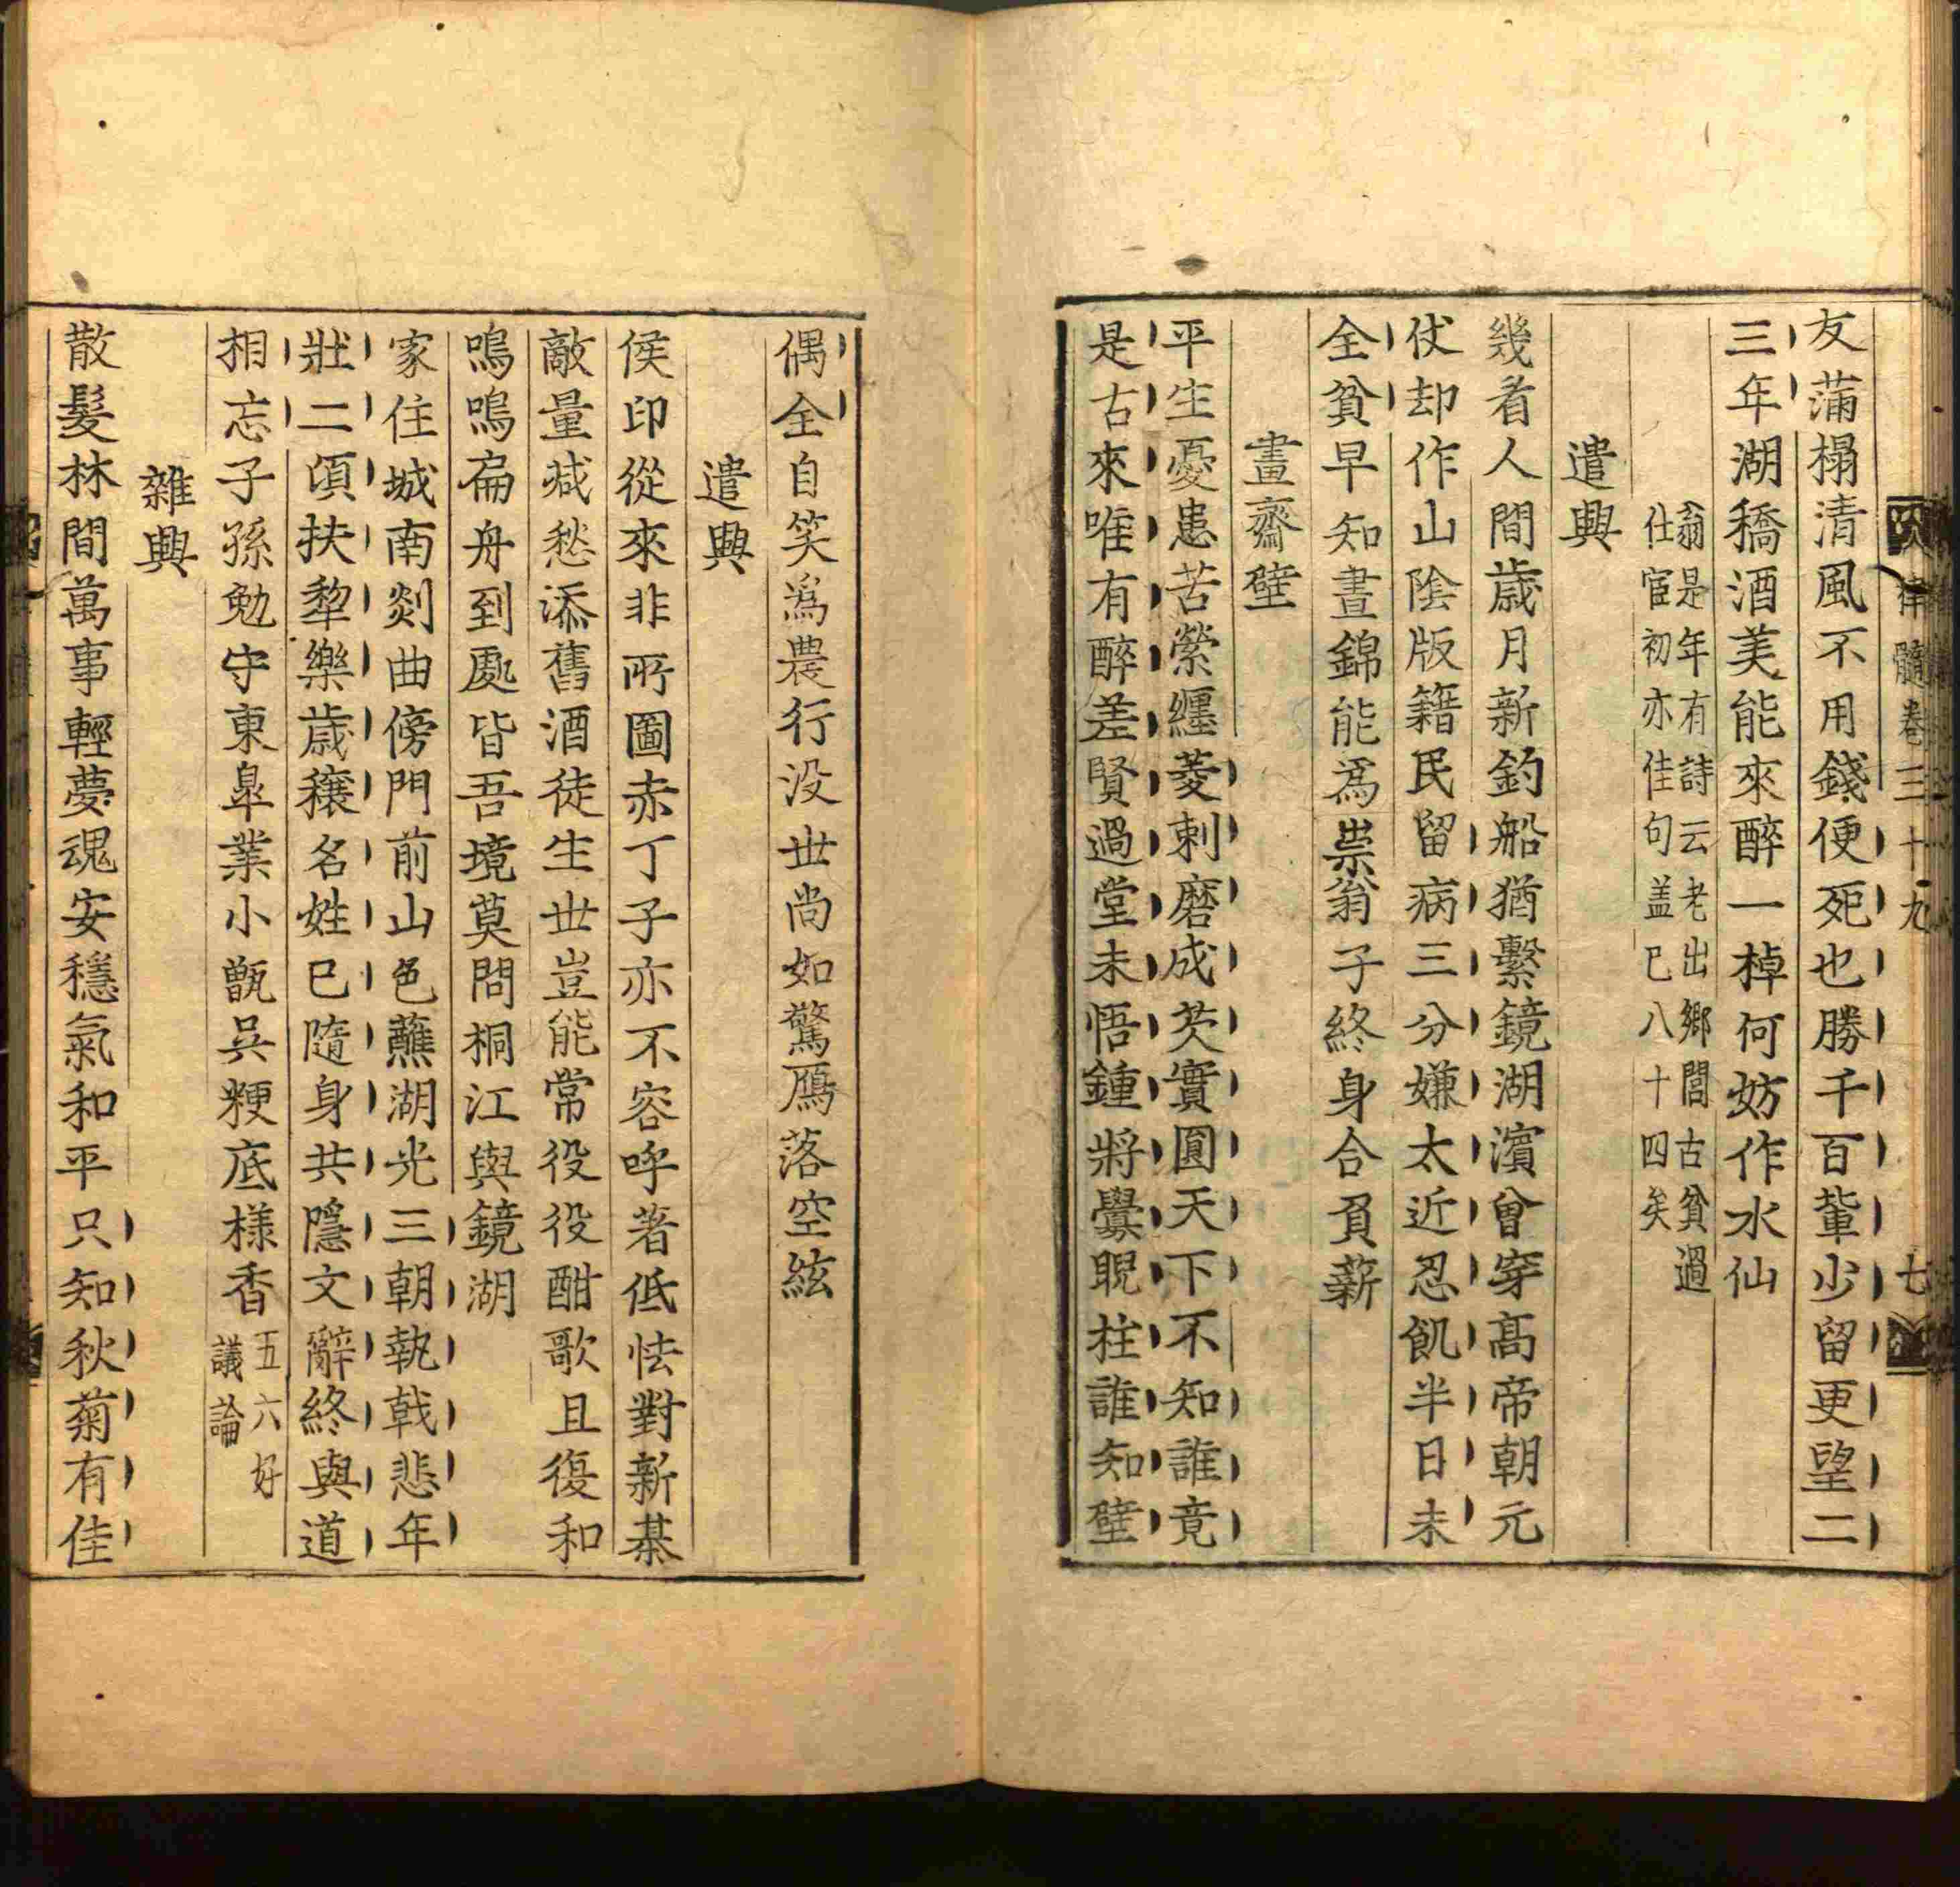 律髓卷三十九 七
友蒲榻清風不用錢便死也勝千百輩少留更望二
三年湖橋酒美能來醉一棹何妨作水仙
翁是年有詩云老出鄉閭古貧過
仕宦初亦佳句盖已八十四矣
遣興
幾看人間歲月新釣船猶繫鏡湖濱曾穿高帝朝元
仗却作山陰版籍民留病三分嫌太近忍飢半日未
全貧早知晝錦能爲祟翁子終身合負薪
畫齋壁
平生憂患苦縈纏菱刺磨成芡實圓天下不知誰竟
是古來唯有醉差賢過堂未悟鍾將釁睨柱誰知壁
偶全自笑爲農行没世尚如驚鴈落空絃
遣興
侯印從來非所圖赤丁子亦不容呼著低怯對新棊
敵量减愁添舊酒徒生世豈能常役役酣歌且復和
嗚嗚扁舟到處皆吾境莫問桐江與鏡湖
家住城南剡曲傍門前山色蘸湖光三朝執戟悲年
壯二頃扶犂樂歲穰名姓已隨身共隱文辭終與道
相忘子孫勉守東臯業小甑吳粳底樣香五六好
議論
雜興
散髮林間萬事輕夢魂安穩氣和平只知秋菊有佳